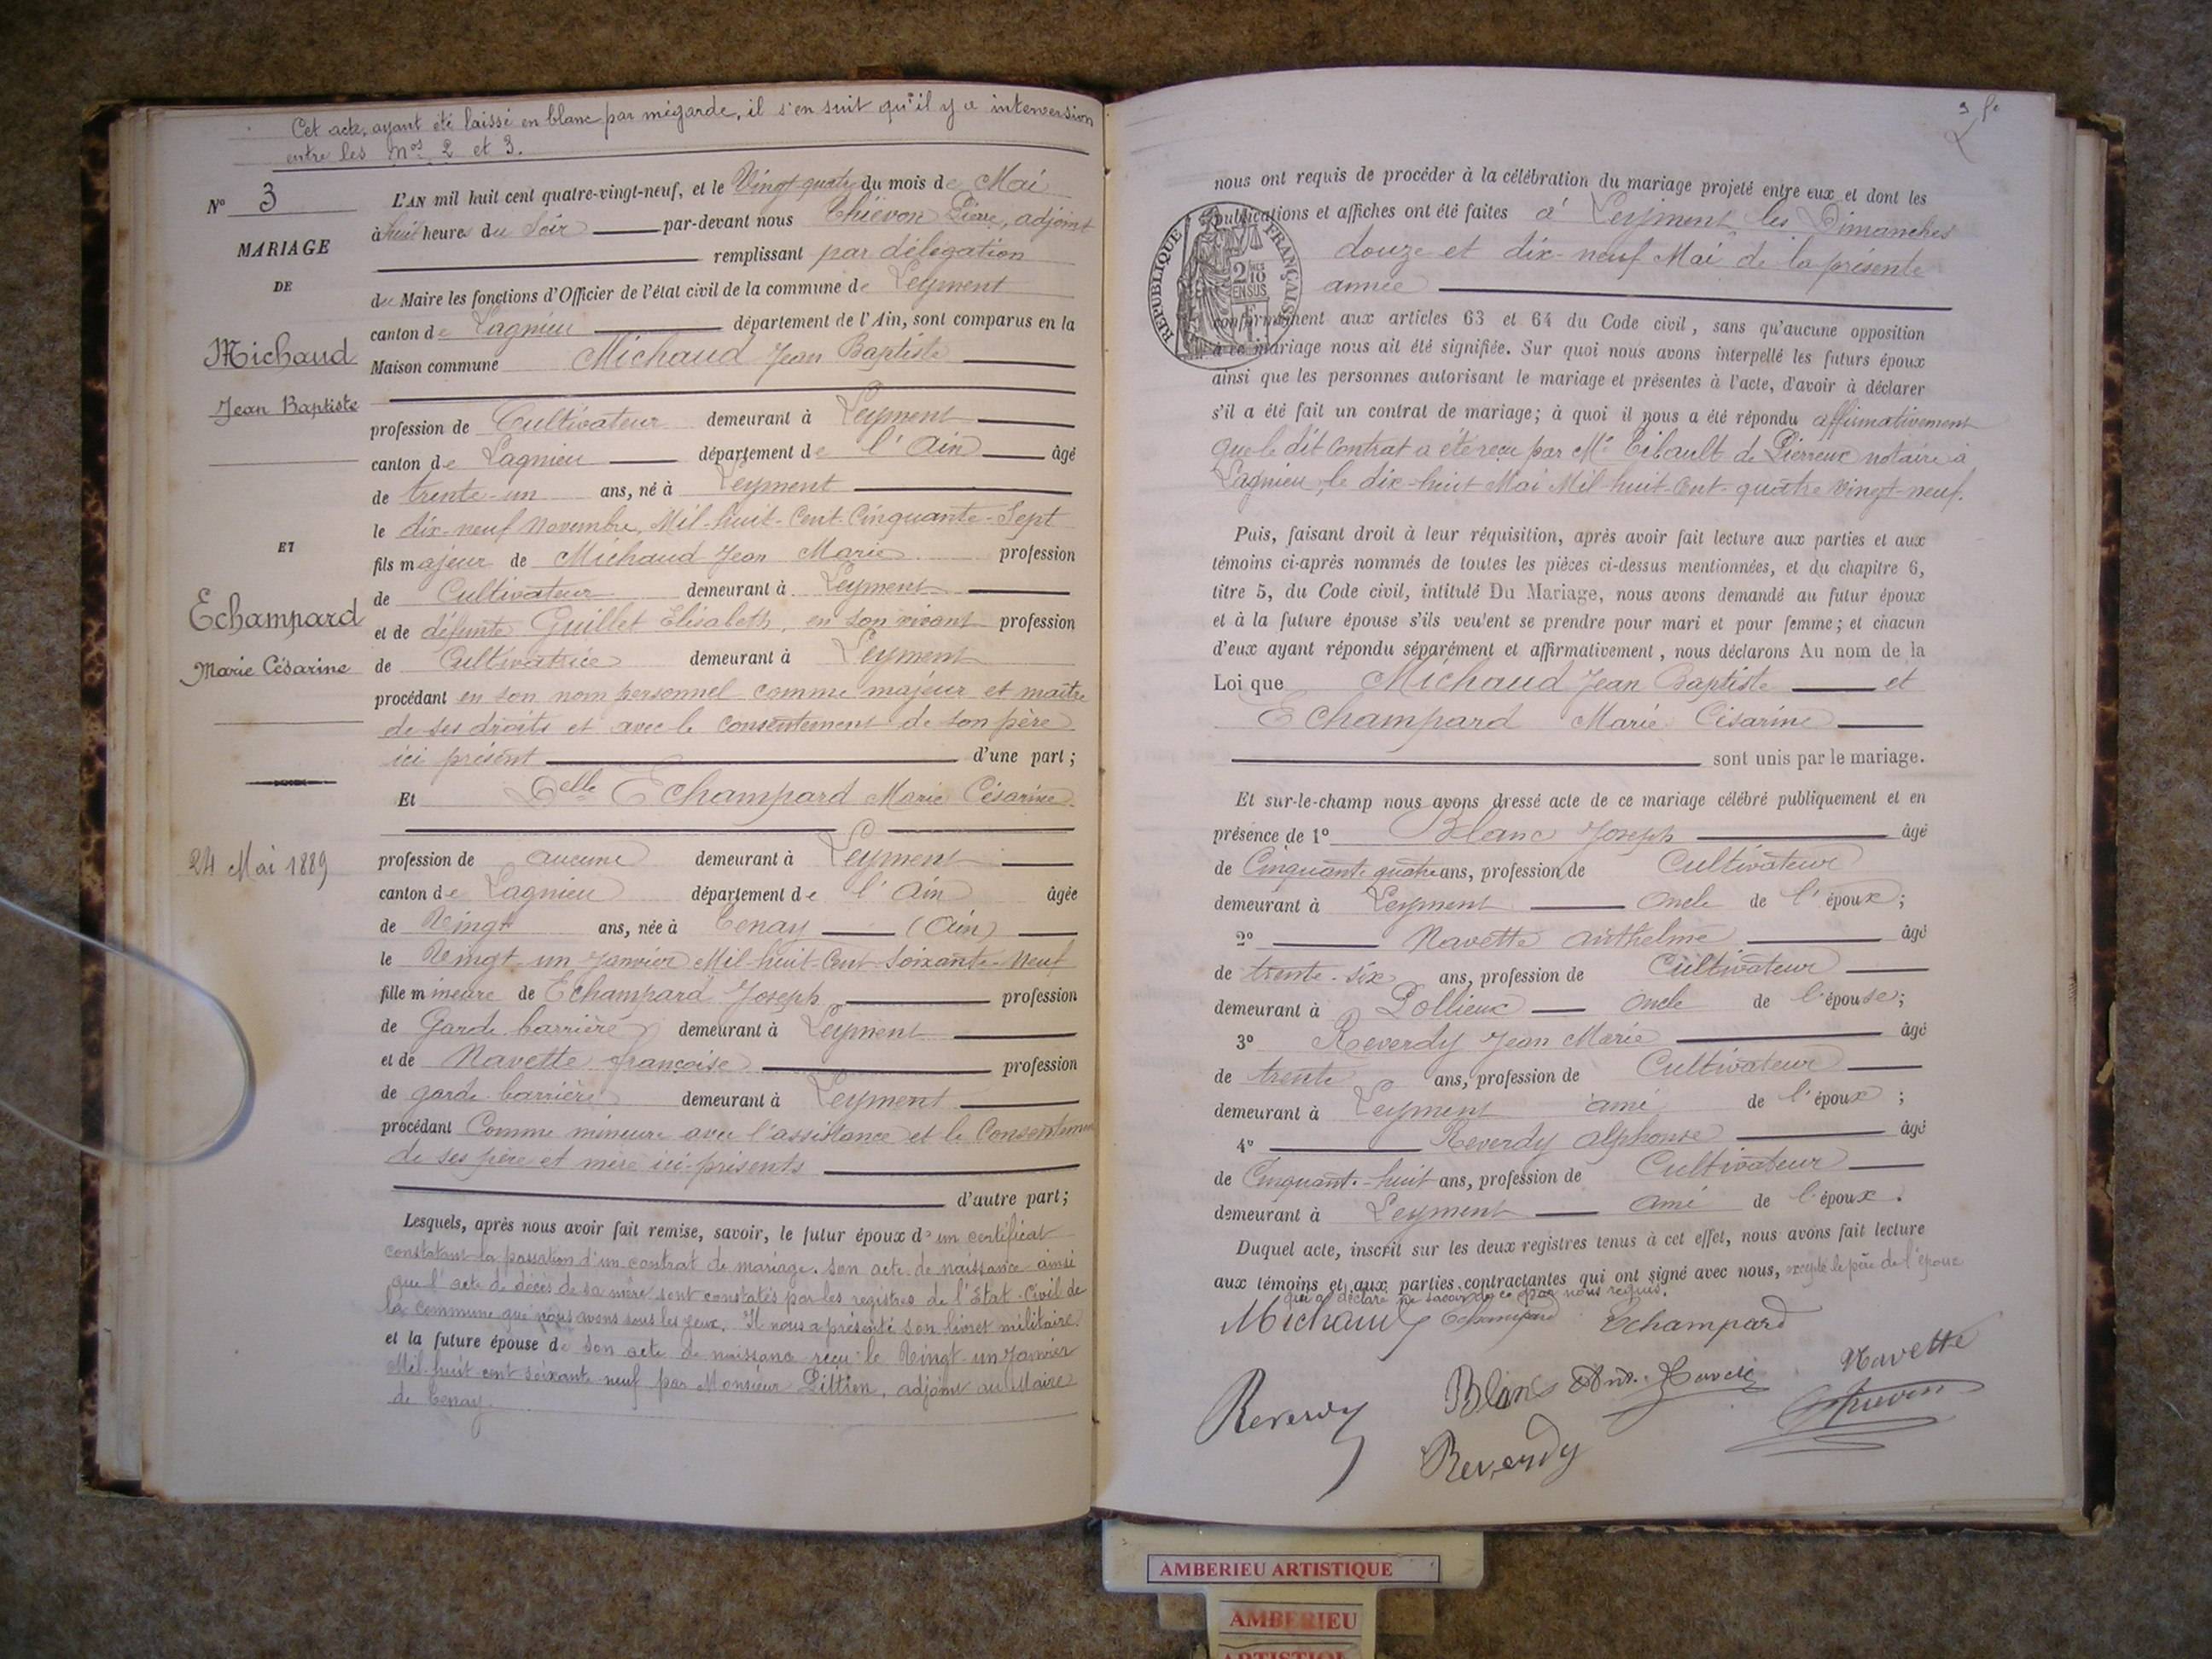 Cet acte, ayant été laissé en blanc par mégarde, il s'en suit qu'il y a interversion
entre les Nos 2 et 3.
N° 3
MARIAGE
DE
Michaud
Jean Baptiste
ET
Echampard
Marie Césarine
24 Mai 1889
L'AN mil huit cent quatre-vingt-neuf, et le Vingt quatre du mois de Mai
à huit heures du Soir par-devant nous Thiévon Pierre, adjoint
remplissant par délégation
du Maire les fonctions d'Officier de l'état civil de la commune de Leyment
canton de Lagnieu département de l'Ain, sont comparus en la
Maison commune Michaud Jean Baptiste
profession de Cultivateur demeurant à Leyment
canton de Lagnieu département de l'Ain âgé
de trente-un ans, né à Leyment
le dix-neuf Novembre, Mil-huit-Cent-Cinquante-Sept
fils majeur de Michaud Jean Marie profession
de Cultivateur demeurant à Leyment
et de défunte Guillet Elisabeth, en son vivant profession
de Cultivatrice demeurant à Leyment
procédant en son nom personnel comme majeur et maître
de ses droits et avec le consentement de son père
ici présent d'une part;
Et Delle Echampard Marie Césarine
profession de aucune demeurant à Leyment
canton de Lagnieu département de l'Ain âgée
de Vingt ans, née à Tenay (Ain)
le Vingt-un Janvier Mil-huit-Cent-Soixante-Neuf
fille mineure de Echampard Joseph profession
de Garde barrière demeurant à Leyment
et de Navette françoise profession
de garde-barrière demeurant à Leyment
procédant Comme mineure avec l'assistance et le Consentement
de ses père et mère ici présents
d'autre part;
Lesquels, après nous avoir fait remise, savoir, le futur époux d'un certificat
constatant la passation d'un contrat de mariage. son acte de naissance ainsi
que l'acte de décès de sa mère sont constatés par les registres de l'Etat-Civil de
la commune que nous avons sous les yeux. Il nous a présenté son livret militaire.
et la future épouse de son acte de naissance reçu le Vingt-un Janvier
Mil-huit cent soixante neuf par Monsieur adjoint au Maire
de Tenay.
nous ont requis de procéder à la célébration du mariage projeté entre eux et dont les
publications et affiches ont été faites à Leyment les Dimanches
douze et dix-neuf Mai de la présente
année
RÉPUBLIQUE FRANÇAISE
2 MES
10
EN SUS
conformément aux articles 63 et 64 du Code civil, sans qu'aucune opposition
à ce mariage nous ait été signifiée. Sur quoi nous avons interpellé les futurs époux
ainsi que les personnes autorisant le mariage et présentes à l'acte, d'avoir à déclarer
s'il a été fait un contrat de mariage; à quoi il nous a été répondu affirmativement
que le dit Contrat a été reçu par Me Tibault de Pierreux notaire à
Lagnieu, le dix-huit Mai Mil huit-Cent-quatre vingt-neuf.
Puis, faisant droit à leur réquisition, après avoir fait lecture aux parties et aux
témoins ci-après nommés de toutes les pièces ci-dessus mentionnées, et du chapitre 6,
titre 5, du Code civil, intitulé Du Mariage, nous avons demandé au futur époux
et à la future épouse s'ils veulent se prendre pour mari et pour femme; et chacun
d'eux ayant répondu séparément et affirmativement, nous déclarons Au nom de la
Loi que Michaud Jean Baptiste et
Echampard Marie Césarine
sont unis par le mariage.
Et sur-le-champ nous avons dressé acte de ce mariage célébré publiquement et en
présence de 1° Blanc Joseph âgé
de Cinquante quatre ans, profession de Cultivateur
demeurant à Leyment Oncle de l'époux;
2° Navette Anthelme âgé
de trente-six ans, profession de Cultivateur
demeurant à Pollieux Oncle de l'épouse;
3° Reverdy Jean Marie âgé
de trente ans, profession de Cultivateur
demeurant à Leyment ami de l'époux;
4° Reverdy Alphonse âgé
de Cinquante-huit ans, profession de Cultivateur
demeurant à Leyment ami de l'époux.
Duquel acte, inscrit sur les deux registres tenus à cet effet, nous avons fait lecture
aux témoins et aux parties contractantes qui ont signé avec nous, excepté le père de l'époux
qui a déclaré ne savoir de ce par nous requis.
Michaud Echampard Echampard
Reverdy Blanc Navette
Reverdy
AMBERIEU ARTISTIQUE
AMBERIEU
ARTISTIQUE